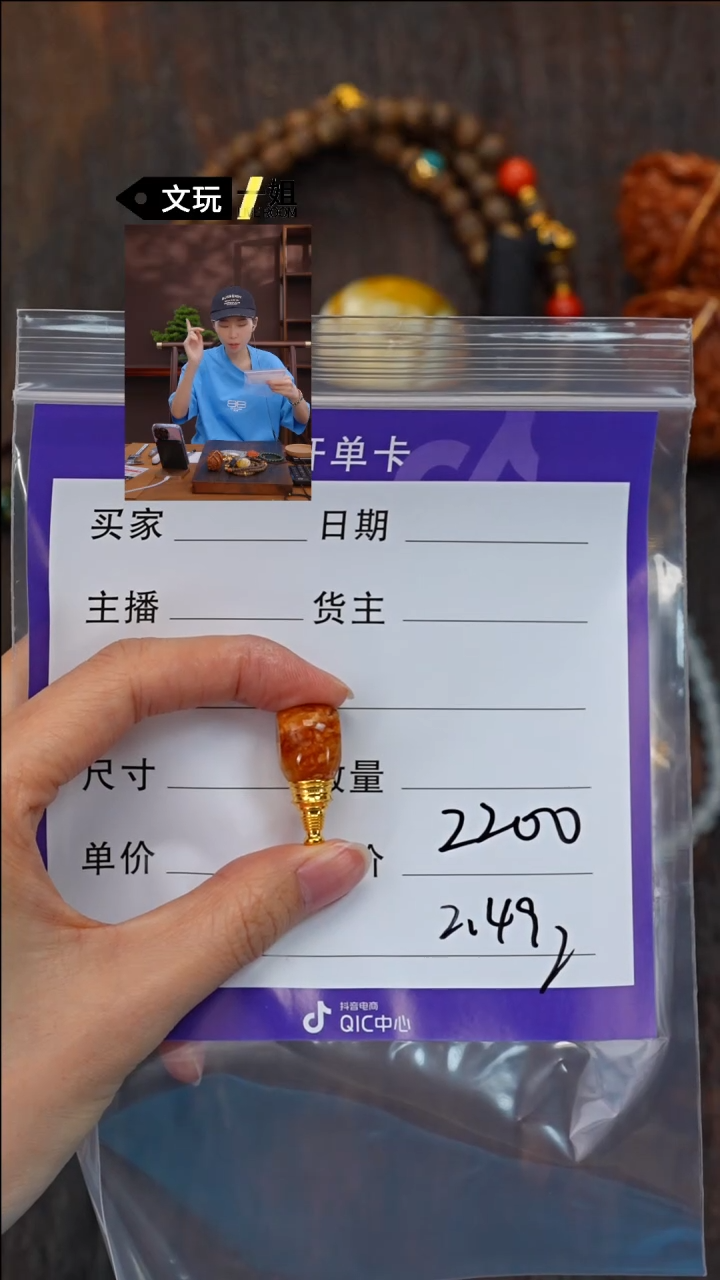 文玩 一姐
开单卡
买家 日期
主播 货主
尺寸 数量
单价 价
2200
2.49g
抖音电商
QIC中心